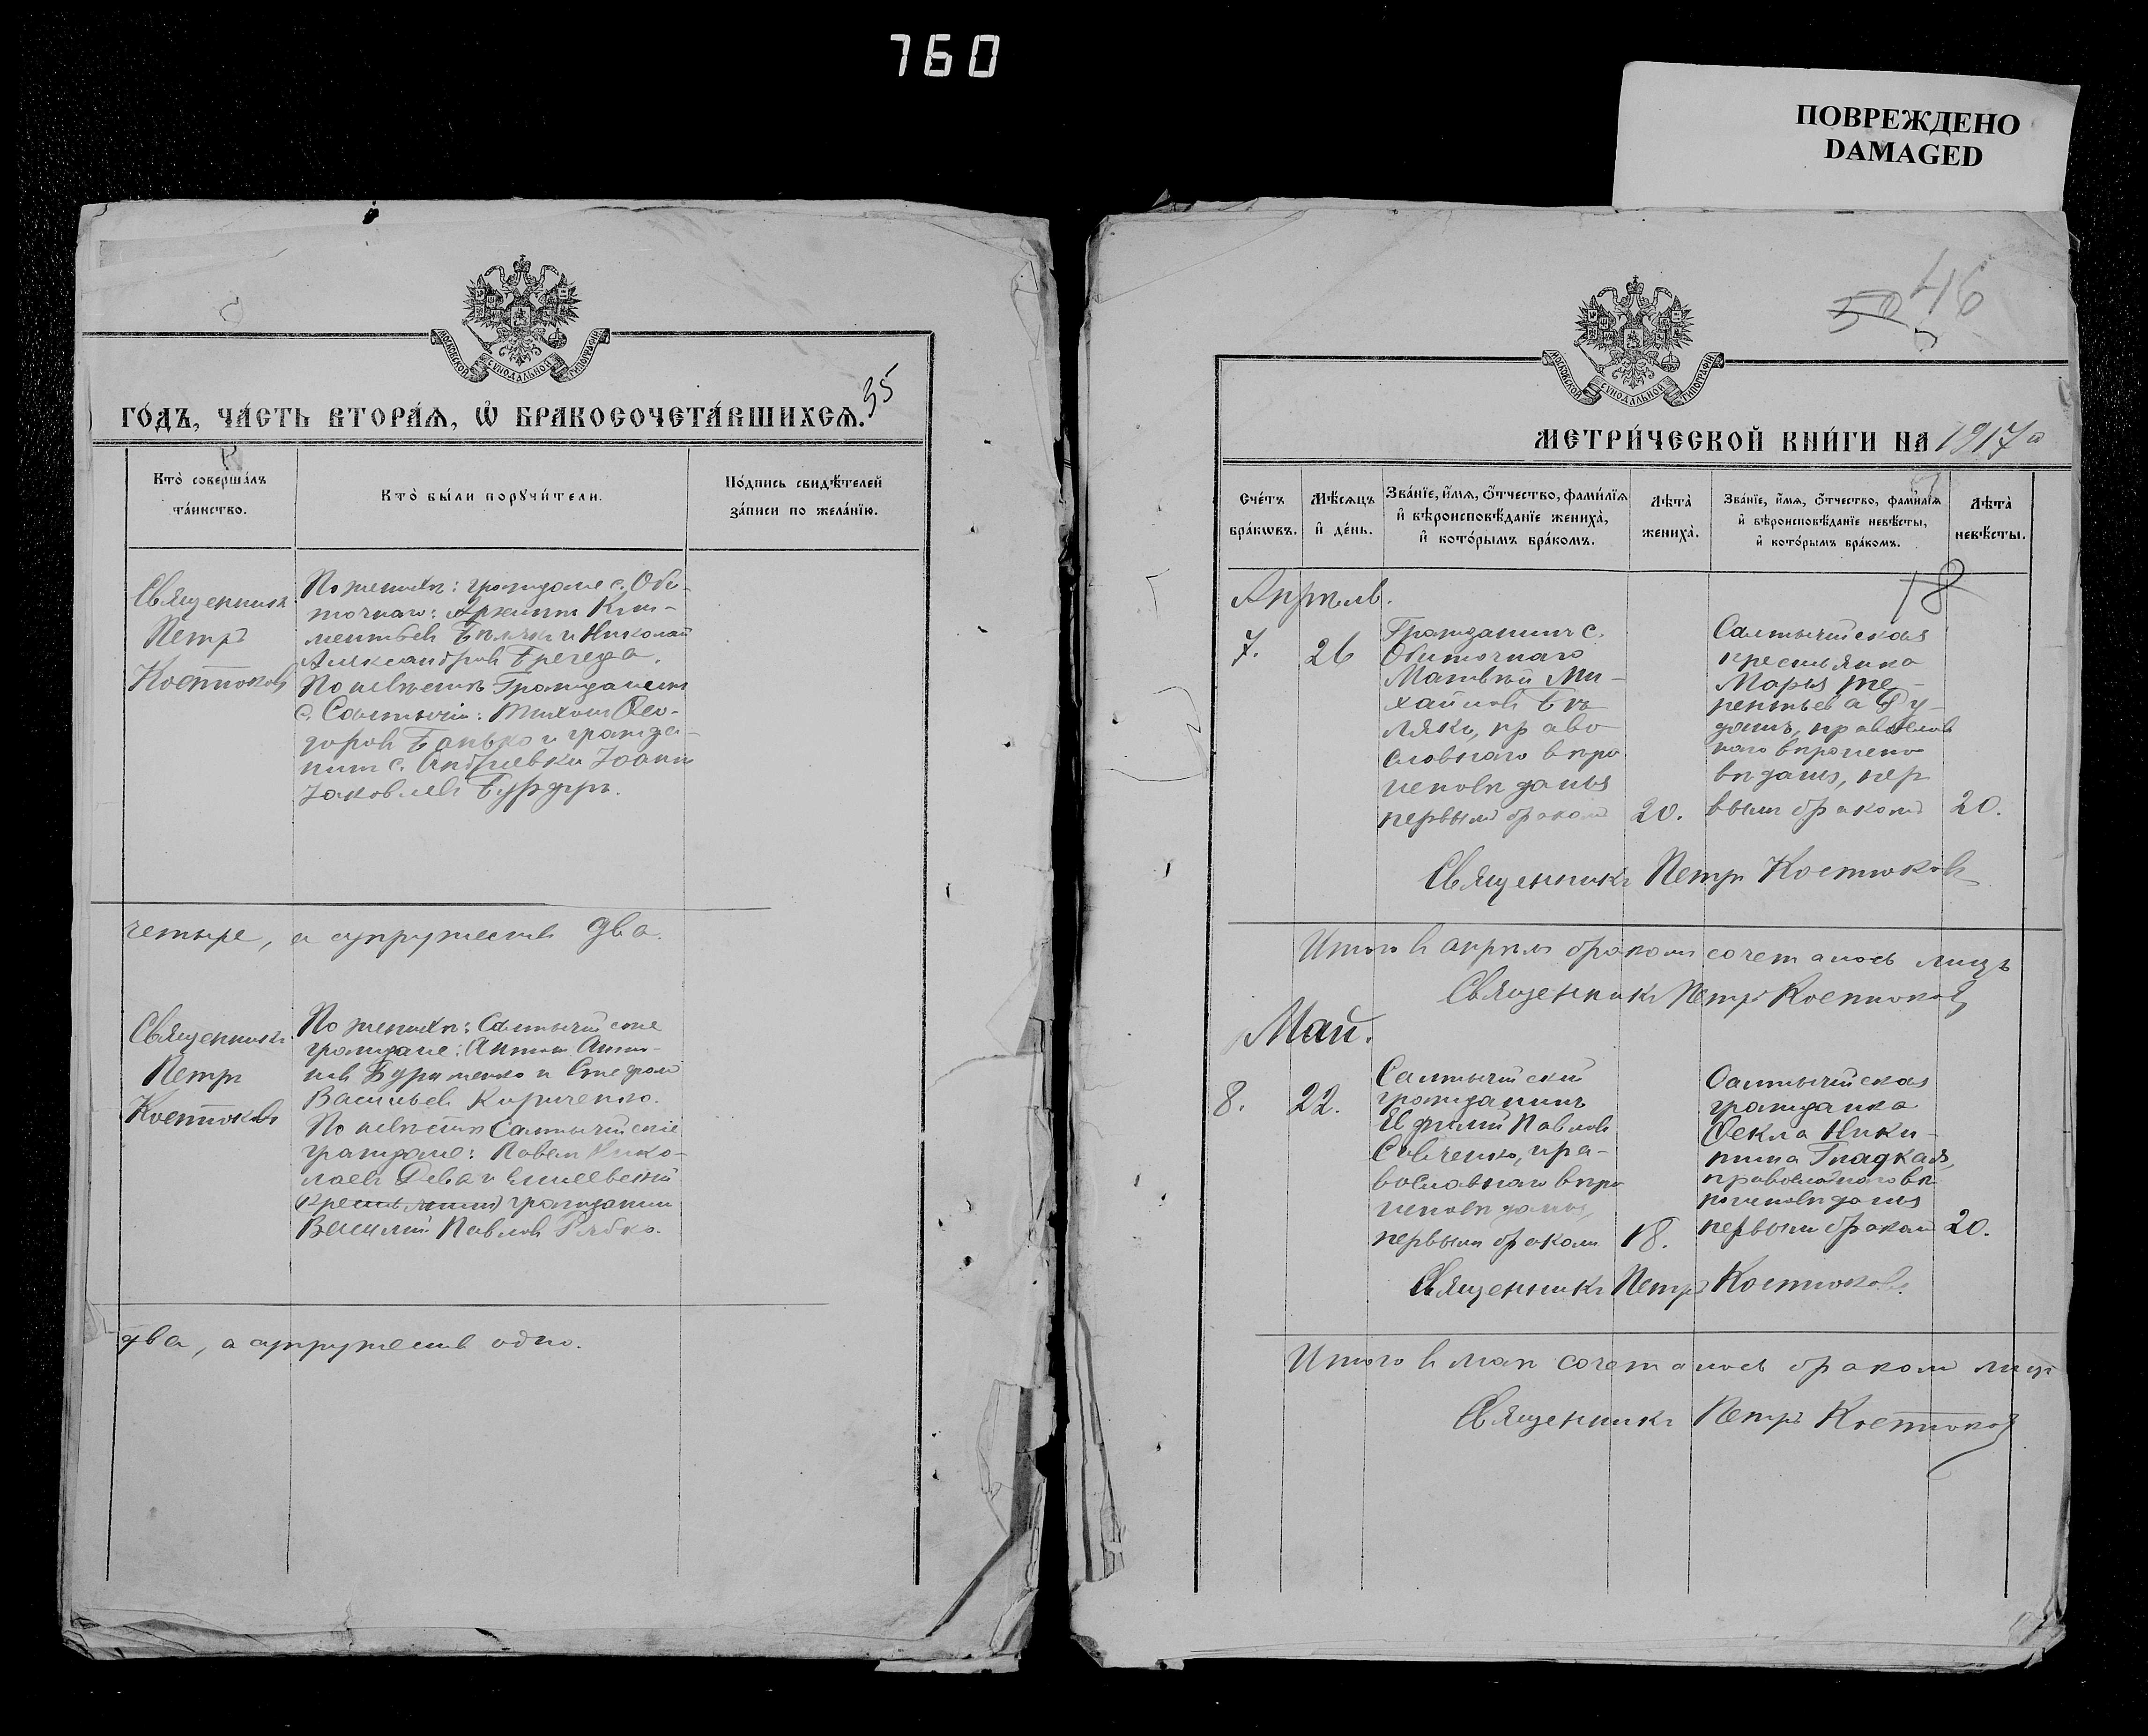 760
ПОВРЕЖДЕНО
DAMAGED
МОСКОВСКОЙ СѴНОДАЛЬНОЙ ТИПОГРАФИИ
35
ГО́ДЪ, ЧА́СТЬ ВТОРА́Ѧ, Ѿ БРАКОСОЧЕТА́ВШИХСѦ.
Кто̀ соверша́лъ
та́инство.
Кто̀ бы́ли порꙋчи́тели.
По́дпись свидѣ́телей
за́писи по жела́нїю.
Священникъ
Петръ
Костюковъ
По женихѣ: граждане с. Оби-
точнаго: Архипъ Кли-
ментьевъ Бѣлякъ и Николай
Александровъ Брегеда.
По невѣстѣ: Гражданинъ
с. Салтычіи: Тихонъ Ѳео-
доровъ Банько и гражда-
нинъ с. Андреевки Іоаннъ
Іаковлевъ
четыре, а супружествъ два.
Священникъ
Петръ
Костюковъ
По женихѣ: Салтычійскіе
граждане: Антонъ
и Стефанъ
Васильевъ Кириченко.
По невѣстѣ Салтычійскіе
граждане: Павелъ Нико-
лаевъ Дева и Елисеевскій
гражданинъ
Василий Павловъ Рябко.
два, а супружествъ одно.
МОСКОВСКОЙ СѴНОДАЛЬНОЙ ТИПОГРАФИИ
50 46
МЕТРИ́ЧЕСКОЙ КНИ́ГИ НА 1917й
Сче́тъ
бра́кѡвъ.
Мѣ́сѧцъ
и҆ де́нь.
Зва́нїе, и҆́мѧ, ѻ҆́тчество, фами́лїѧ
и҆ вѣроисповѣ́данїе жениха̀,
и҆ кото́рымъ бра́комъ.
Лѣта̀
жениха̀.
Зва́нїе, и҆́мѧ, ѻ҆́тчество, фами́лїѧ
и҆ вѣроисповѣ́данїе невѣ́сты,
и҆ кото́рымъ бра́комъ.
Лѣта̀
невѣ́сты.
18
Апрѣль.
7. 26
Гражданинъ с.
Обиточнаго
Матвѣй Ми-
хайловъ Бѣ-
лякъ, право
славнаго вѣро
исповѣданія
первымъ бракомъ
20.
Салтычійская
крестьянка
Марья Те-
рентьева Ду-
данъ, православ
наго вѣроиспо
вѣданія, пер
вымъ бракомъ
20.
Священникъ Петръ Костюковъ
Итого въ апрѣлѣ бракомъ сочеталось лицъ
Священникъ Петръ Костюковъ
Май.
8. 22.
Салтычійскій
гражданинъ
Евфимій Павловъ
Савченко, пра-
вославнаго вѣро
исповѣданія,
первымъ бракомъ
18.
Салтычійская
гражданка
Ѳекла Ники-
тина Гладкая,
православнаго вѣ
роисповѣданія
первымъ бракомъ
20.
Священникъ Петръ Костюковъ.
Итого въ маѣ сочеталось бракомъ лицъ
Священникъ Петръ Костюковъ